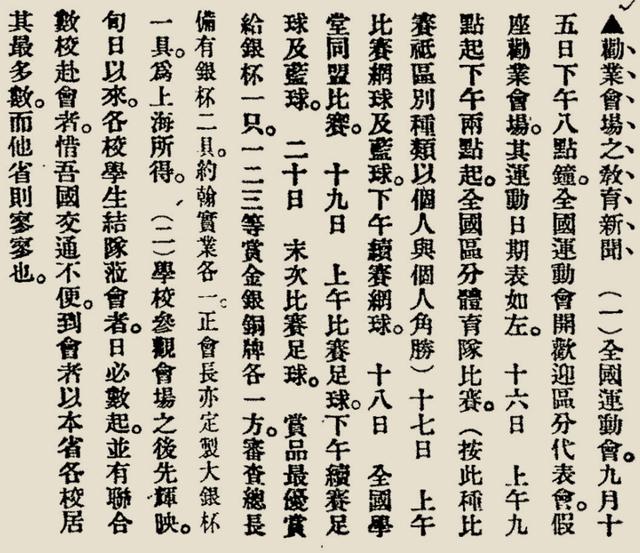 ▲勸業會場之敎育新聞　（一）全國運動會。九月十
五日下午八點鐘。全國運動會開歡迎區分代表會。假
座勸業會場。其運動日期表如左。　十六日　上午九
點起下午兩點起。全國區分體育隊比賽。（按此種比
賽祇區別種類以個人與個人角勝）十七日　上午
比賽網球及藍球。下午續賽網球。　十八日　全國學
堂同盟比賽。　十九日　上午比賽足球。下午續賽足
球及藍球。　二十日　末次比賽足球。　賞品最優賞
給銀杯一只。一二三等賞金銀銅牌各一方。審查總長
備有銀杯二具。約翰實業各一。正會長亦定製大銀杯
一具。爲上海所得。　（二）學校參觀會場之後先輝映。
旬日以來。各校學生結隊蒞會者。日必數起。並有聯合
數校赴會者。惜吾國交通不便。到會者以本省各校居
其最多數。而他省則寥寥也。